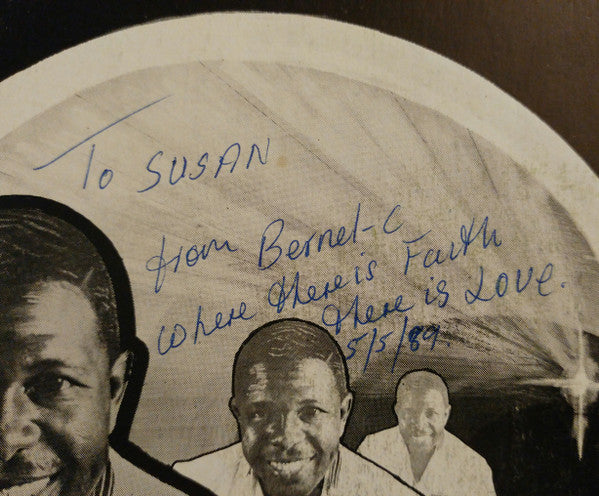 To SUSAN
from Bernel-C
where there is Faith
there is Love.
5/5/89